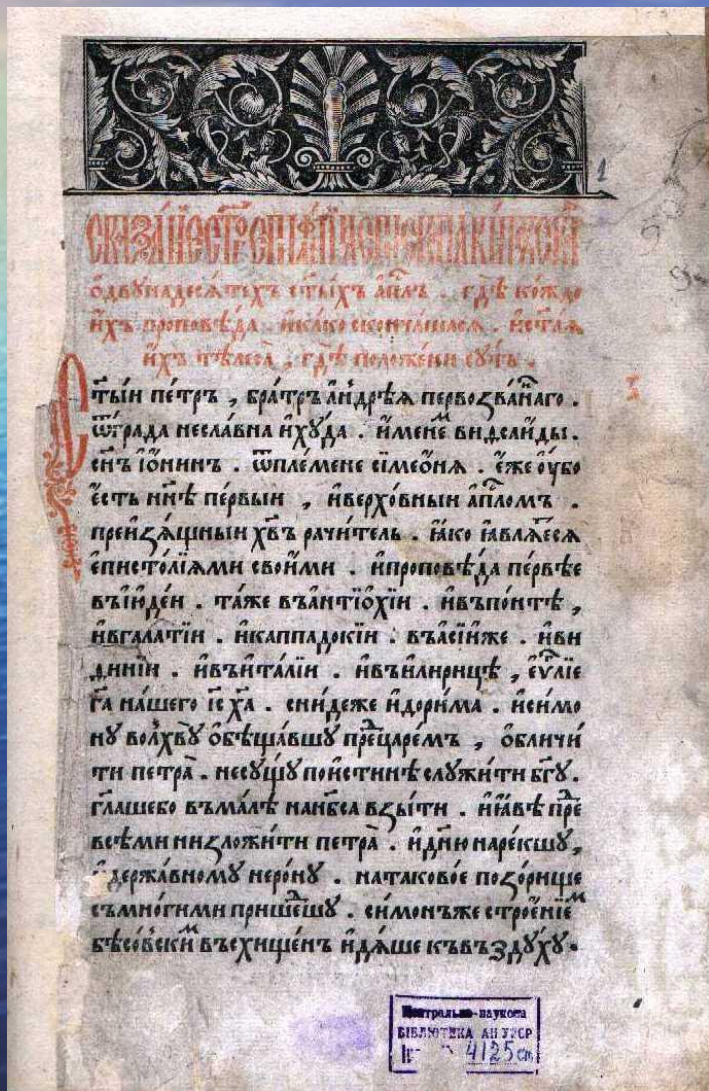 1
СКАЗА́НЇЕ СТ҃ГО ЕПИФА́НЇѦ ЕПИСКПА КИ́ПРЬСКА
ѻ҆двꙋнадесѧ́тихъ ст҃ы́хъ а҆пл҃ъ . гдѣ̀ ко́ждо
и҆́хъ проповѣ́да . и҆ка́ко сконча́шасѧ . и҆ст҃аѧ
и҆́хъ тѣлеса̀ , гдѣ̀ положе́ни сꙋ́ть .
Ст҃ы́и пе́тръ , бра́тръ а҆ндрѣ́ѧ первозва́ннаго .
ѿгра́да несла́вна и҆хꙋ́да . и҆́менемъ виѳсаи́ды .
сн҃ъ і҆ѡ́нинъ . ѿпле́мене сѷмео́нѧ . є҆́же ᲂу҆́бо
є҆́сть нн҃ѣ пе́рвыи , и҆верхо́вныи а҆пл҃омъ .
преизѧ́щныи хв҃ъ рачи́тель . ꙗ҆́ко ꙗ҆влѧ́есѧ
є҆писто́лїѧми свои́ми . и҆проповѣ́да пе́рвѣе
въі҆юде́и . та́же въа҆нтїѻ́хїи . и҆въпо́нтѣ ,
и҆вгала́тїи . и҆каппадокі́и . въа҆сі́и же . и҆ви
ди́нїи . и҆въи҆та́лїи . и҆въи҆лири́цѣ , є҆ѵ҃лїе
га҃ на́шего і҆с ха҃ . сни́деже и҆дори́ма . и҆симо
нꙋ волхвꙋ̀ ѻ҆бѣща́вшꙋ пре́дцаремъ , ѻ҆бличи́
ти петра̀ . несꙋ́щꙋ пои́стиннѣ слꙋжи́ти бг҃ꙋ .
гл҃ашебо въма́лѣ нанб҃са взы́ти . и҆ꙗ҆́вѣ пре́д
всѣ́ми низложи́ти петра̀ . и҆дн҃ю наре́кшꙋ ,
и҆держа́вномꙋ неро́нꙋ . натаково́е позо́рище
съмно́гими прише́дшꙋ . си́монъже строе́нїемъ
бѣсо́вскимъ въсхище́нъ и҆дѧ́ше къвъздꙋ́хꙋ .
Центрально-наукова
БІБЛІОТЕКА АН УРСР
4125 ст